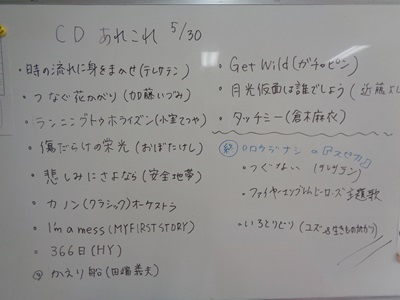 CD あれこれ 5/30
・時の流れに身をまかせ(テレサテン)
・つなぐ花かがり(加藤いづみ)
・ランニングトゥホライズン(小室てつや)
・傷だらけの栄光(おぼたけし)
・悲しみにさよなら(安全地帯)
・カノン(クラシック)オーケストラ
・I'm a mess(MY FIRST STORY)
・366日(HY)
かえり船(田端義夫)
・Get Wild(ガチャピン)
・月光仮面は誰でしょう(近藤よ
・タッチミー(倉木麻衣)
ロクデナシ
・つぐない(テレサテン)
・ファイヤーエンブレムヒーローズ主題歌
・いろとりどり